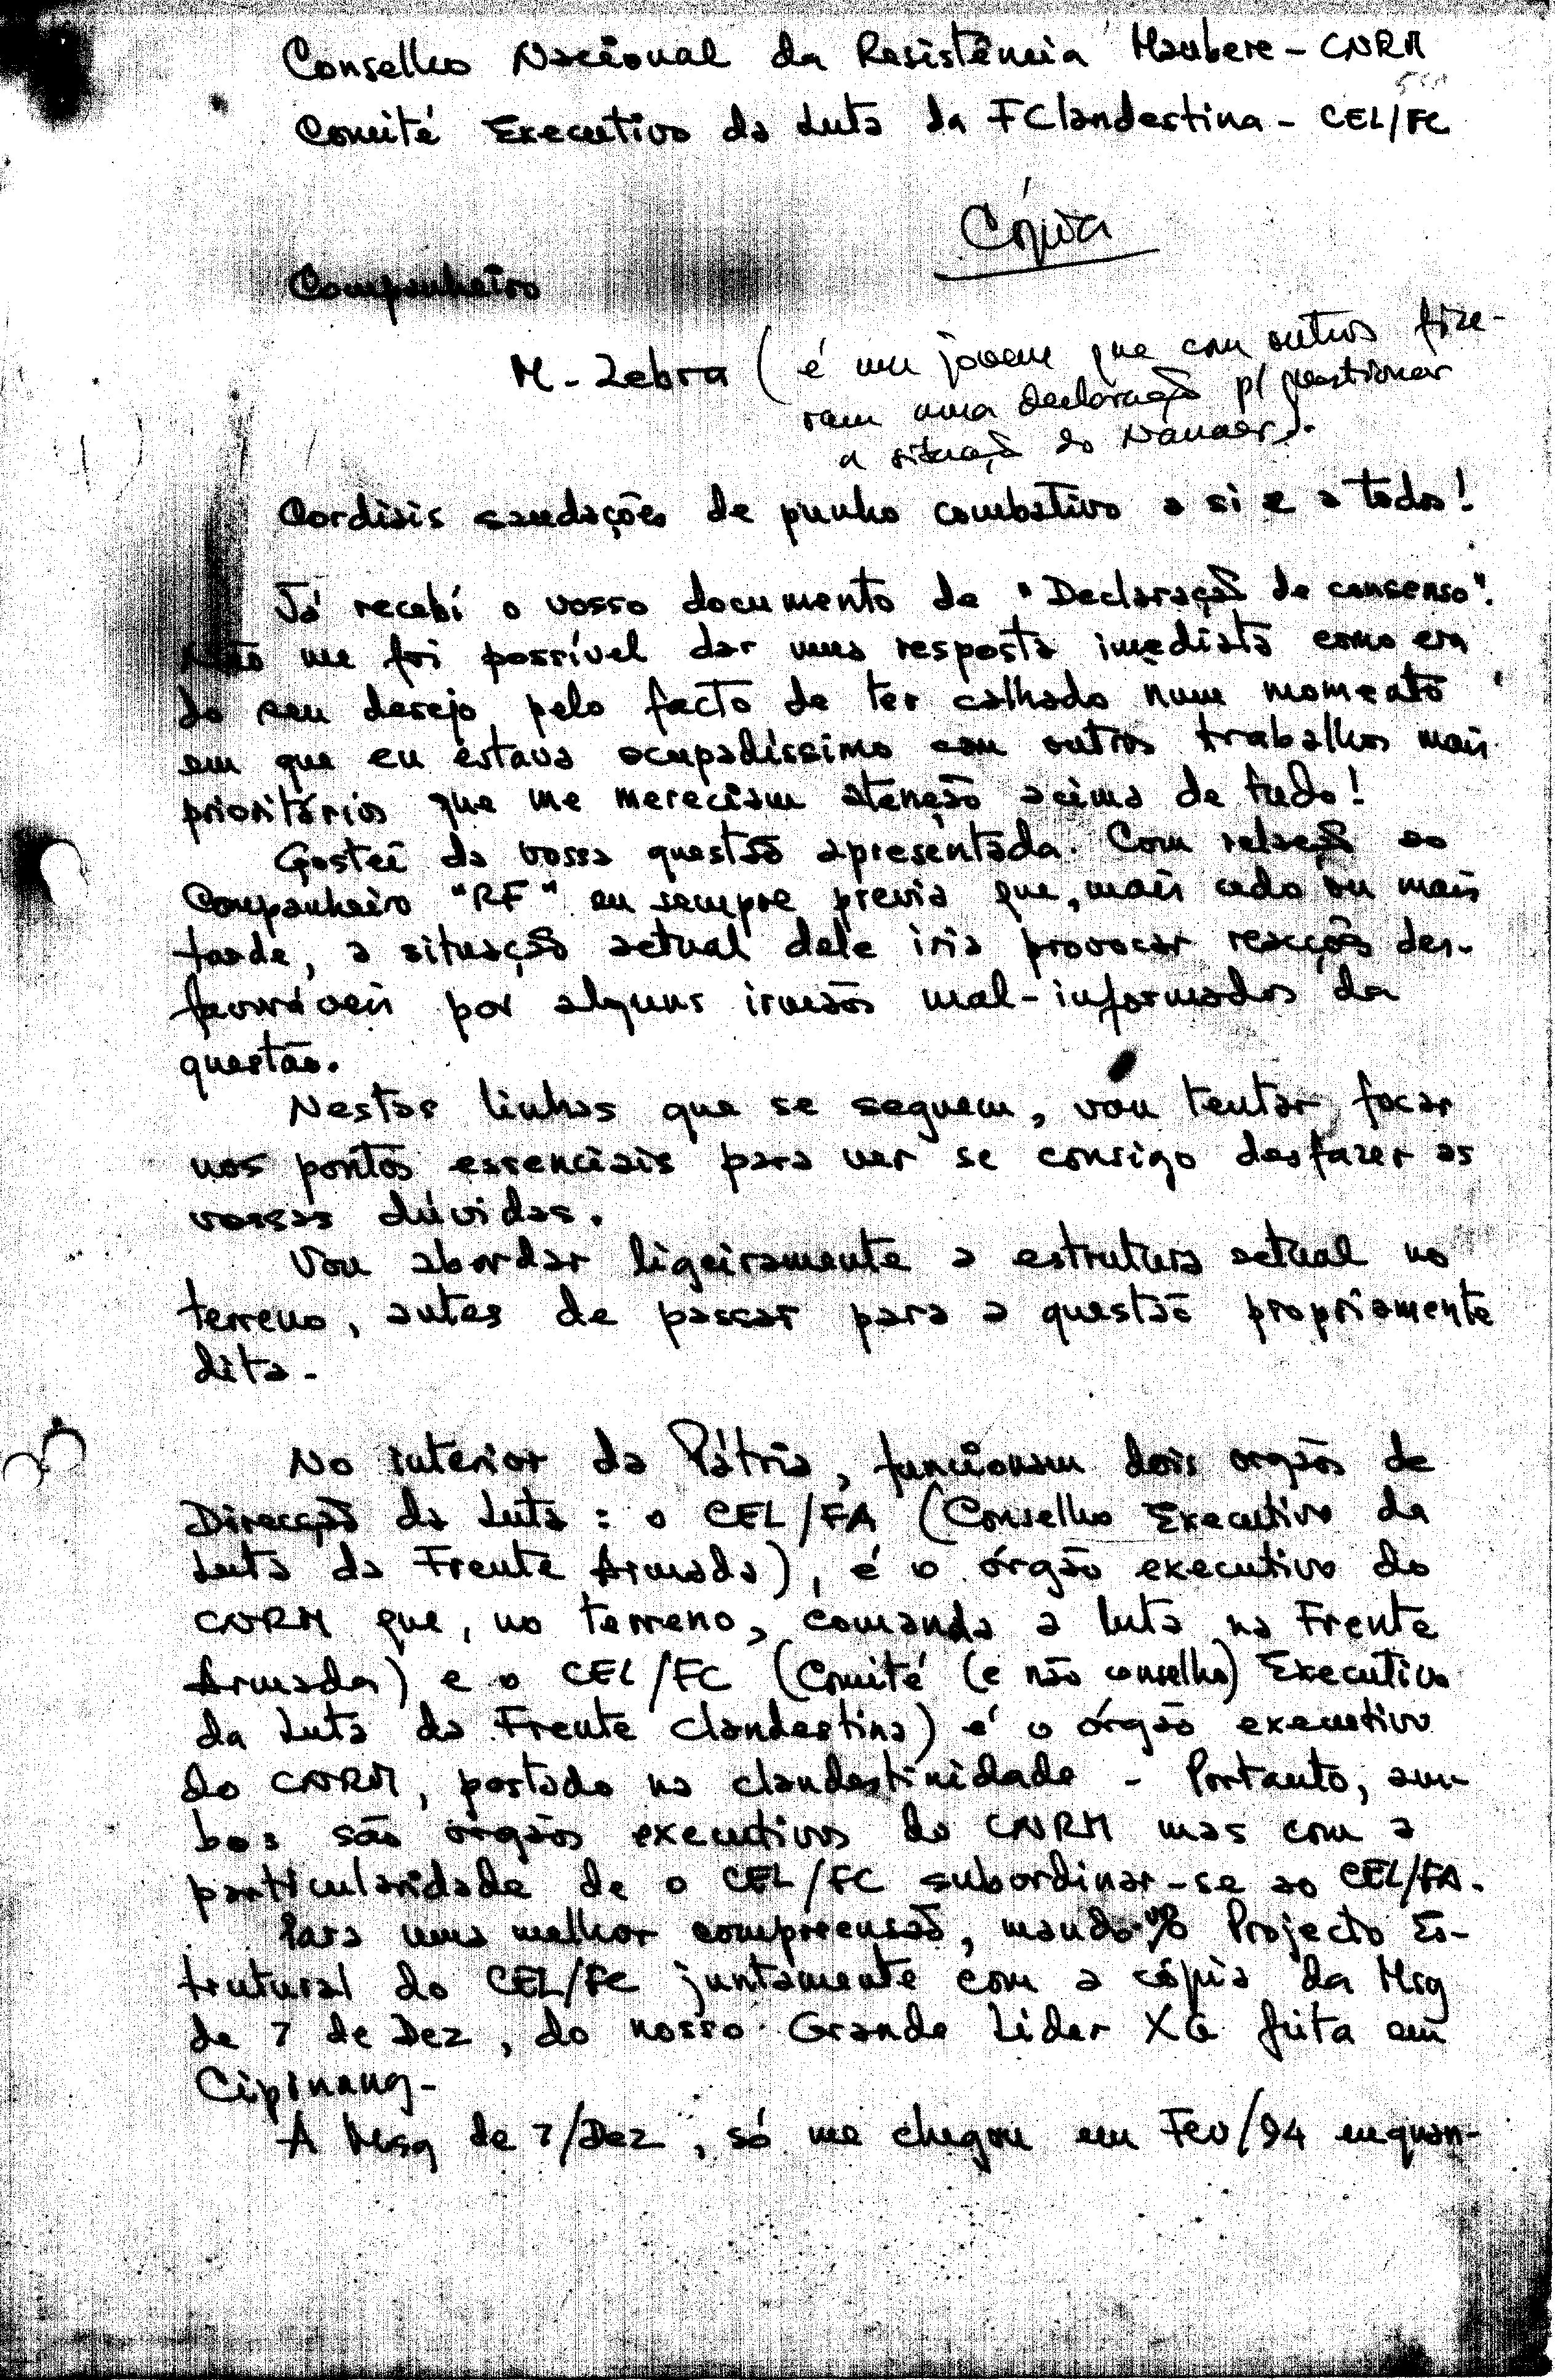 Conselho Nacional da Resistência Maubere - CNRM
Comité Executivo da Luta da FClandestina - CEL/FC
Cópia
Companheiro
M-Zebra (é um jovem que com outros fize-
ram uma declaração p/ questionar
a situação do
Cordiais saudações de punho combativo a si e a todos!
Já recebí o vosso documento de "Declaração de consenso".
Não me foi possível dar uma resposta imediata como era
do seu desejo, pelo facto de ter calhado num momento
em que eu estava ocupadíssimo com outros trabalhos mais
prioritários que me mereciam atenção acima de tudo!
Gostei da vossa questão apresentada. Com relação ao
Companheiro "RF" eu sempre previa que, mais cedo ou mais
tarde, a situação actual dele iria provocar reacções des-
favoráveis por alguns irmãos mal-informados da
questão.
Nestas linhas que se seguem, vou tentar focar
nos pontos essenciais para ver se consigo desfazer as
vossas dúvidas.
Vou abordar ligeiramente a estrutura actual no
terreno, antes de passar para a questão propriamente
dita.
No interior da Pátria, funcionam dois orgãos de
Direcção da Luta: o CEL/FA (Conselho Executivo da
Luta da Frente Armada), é o órgão executivo do
CNRM que, no terreno, comanda a luta na Frente
Armada) e o CEL/FC (Comité (e não conselho) Executivo
da Luta da Frente Clandestina) é o órgão executivo
do CNRM, postado na clandestinidade - Portanto, am-
bos são orgãos executivos do CNRM mas com a
particularidade de o CEL/FC subordinar-se ao CEL/FA.
Para uma melhor compreensão, mando-vos o Projecto Es-
trutural do CEL/FC juntamente com a cópia da Msg
de 7 de Dez, do nosso Grande Líder XG feita em
Cipinang-
A Msg de 7/Dez, só me chegou em Fev/94 enquan-